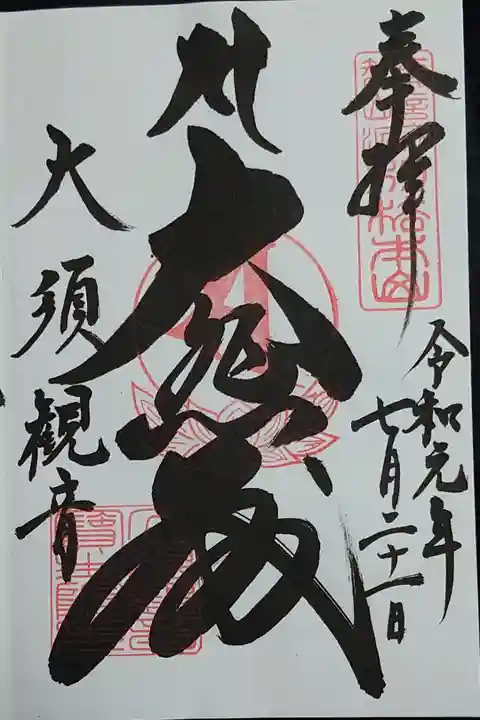 奉拝
令和元年
七月二十一日
大悲殿
大須観音